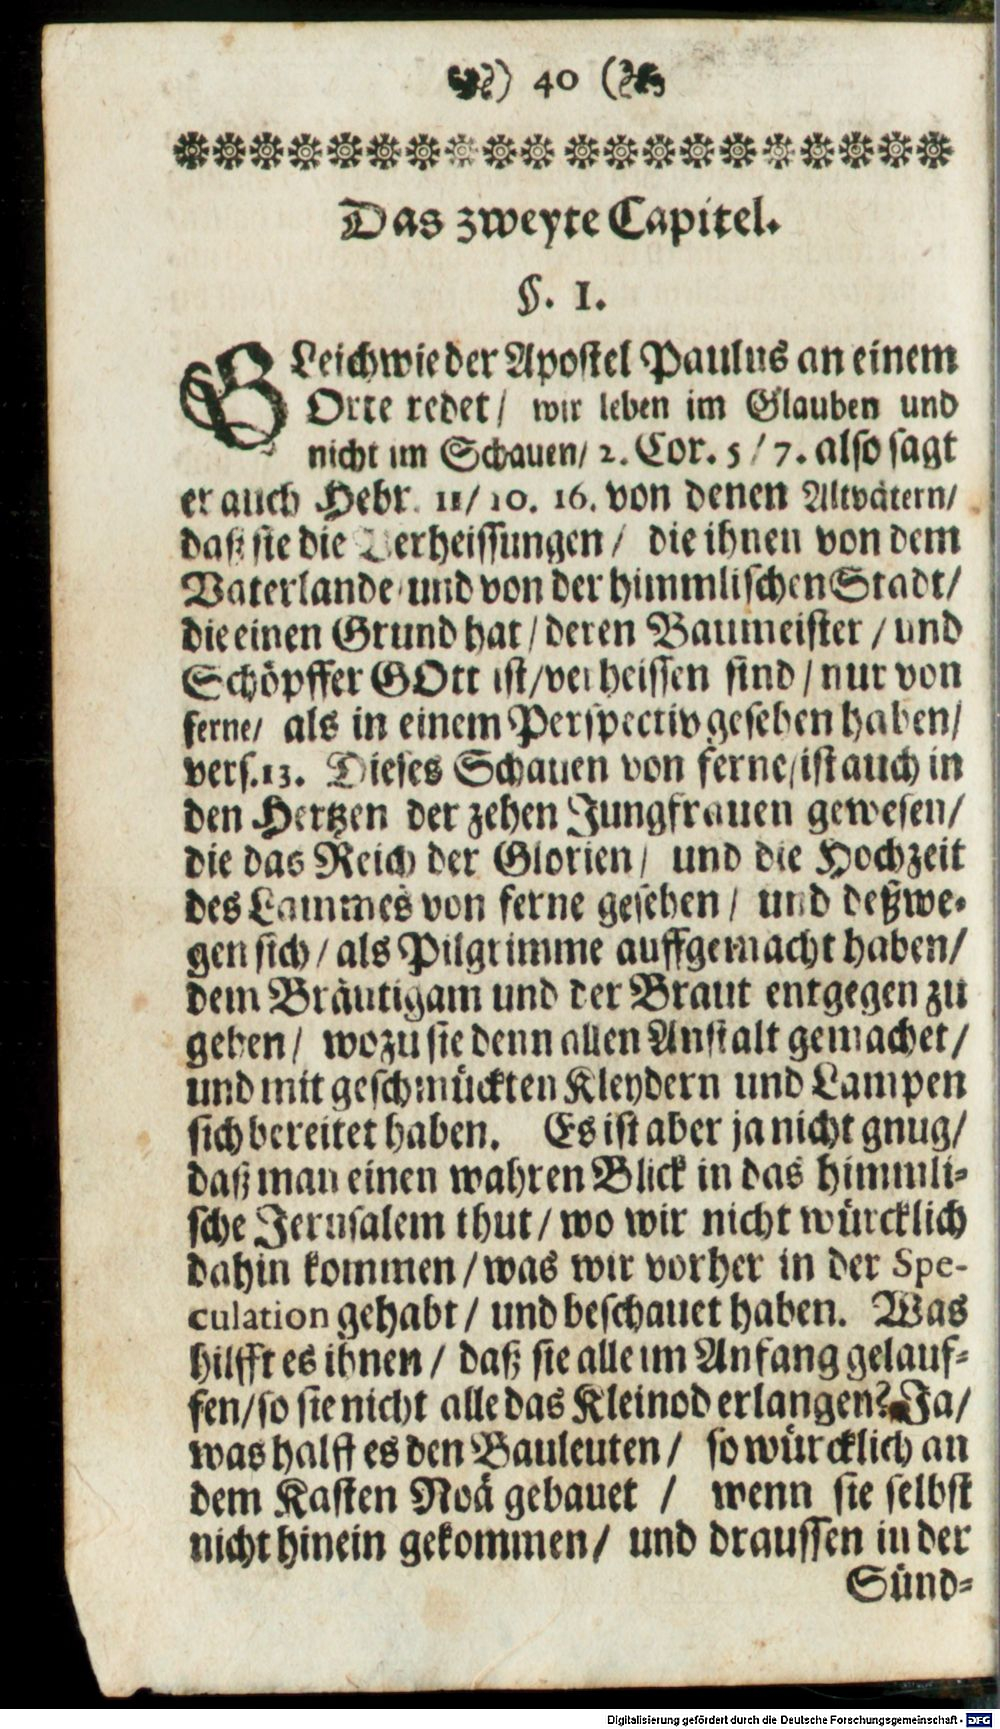 ) 40 (
Das zweyte Capitel.
§. 1.
GLeichwie der Apostel Paulus an einem
Orte redet / wir leben im Glauben und
nicht im Schauen / 2. Cor. 5 / 7. also sagt
er auch Hebr. 11 / 10. 16. von denen Altvätern /
daß sie die Verheissungen / die ihnen von dem
Vaterlande und von der himmlischen Stadt /
die einen Grund hat / deren Baumeister / und
Schöpffer GOtt ist / verheissen sind / nur von
ferne / als in einem Perspectiv gesehen haben /
vers. 13. Dieses Schauen von ferne / ist auch in
den Hertzen der zehen Jungfrauen gewesen /
die das Reich der Glorien / und die Hochzeit
des Lammes von ferne gesehen / und deßwe-
gen sich / als Pilgrimme auffgemacht haben /
dem Bräutigam und der Braut entgegen zu
gehen / wozu sie denn allen Anstalt gemachet /
und mit geschmückten Kleydern und Lampen
sich bereitet haben. Es ist aber ja nicht gnug /
daß man einen wahren Blick in das himmli-
sche Jerusalem thut / wo wir nicht würcklich
dahin kommen / was wir vorher in der Spe-
culation gehabt / und beschauet haben. Was
hilfft es ihnen / daß sie alle im Anfang gelauf-
fen / so sie nicht alle das Kleinod erlangen? Ja /
was halff es den Bauleuten / so würcklich an
dem Kasten Noä gebauet / wenn sie selbst
nicht hinein gekommen / und draussen in der
Sünd-
Digitalisierung gefördert durch die Deutsche Forschungsgemeinschaft - DFG